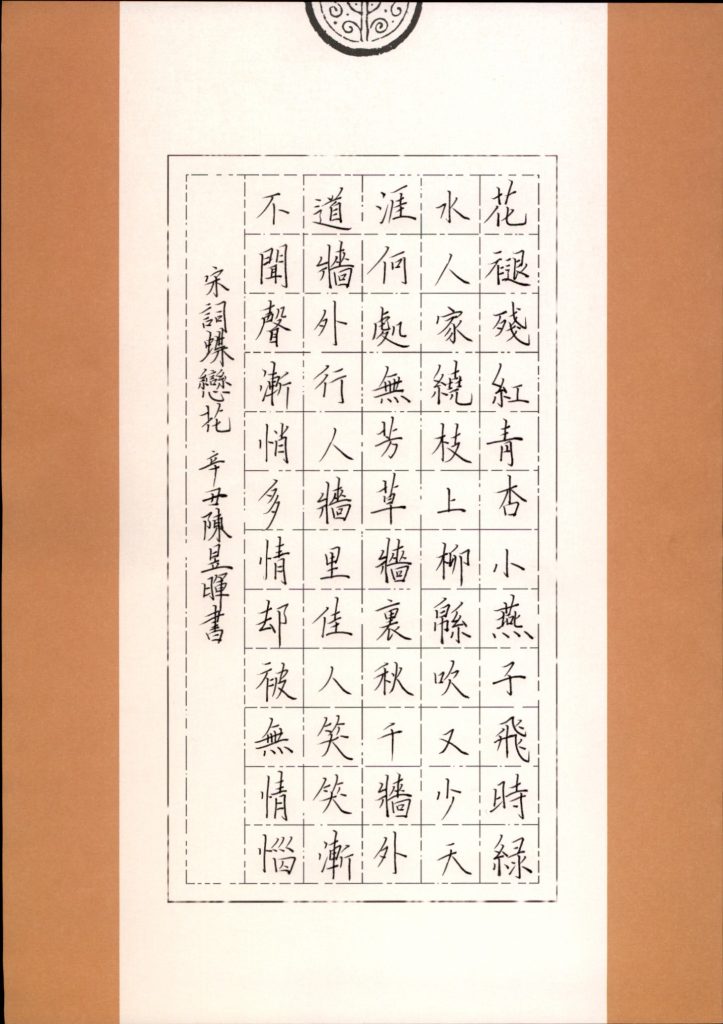 花褪殘紅青杏小燕子飛時緑
水人家繞枝上柳緜吹又少天
涯何處無芳草牆裏秋千牆外
道牆外行人牆里佳人笑笑漸
不聞聲漸悄多情却被無情惱
宋詞蝶戀花 辛丑陳昱暉書